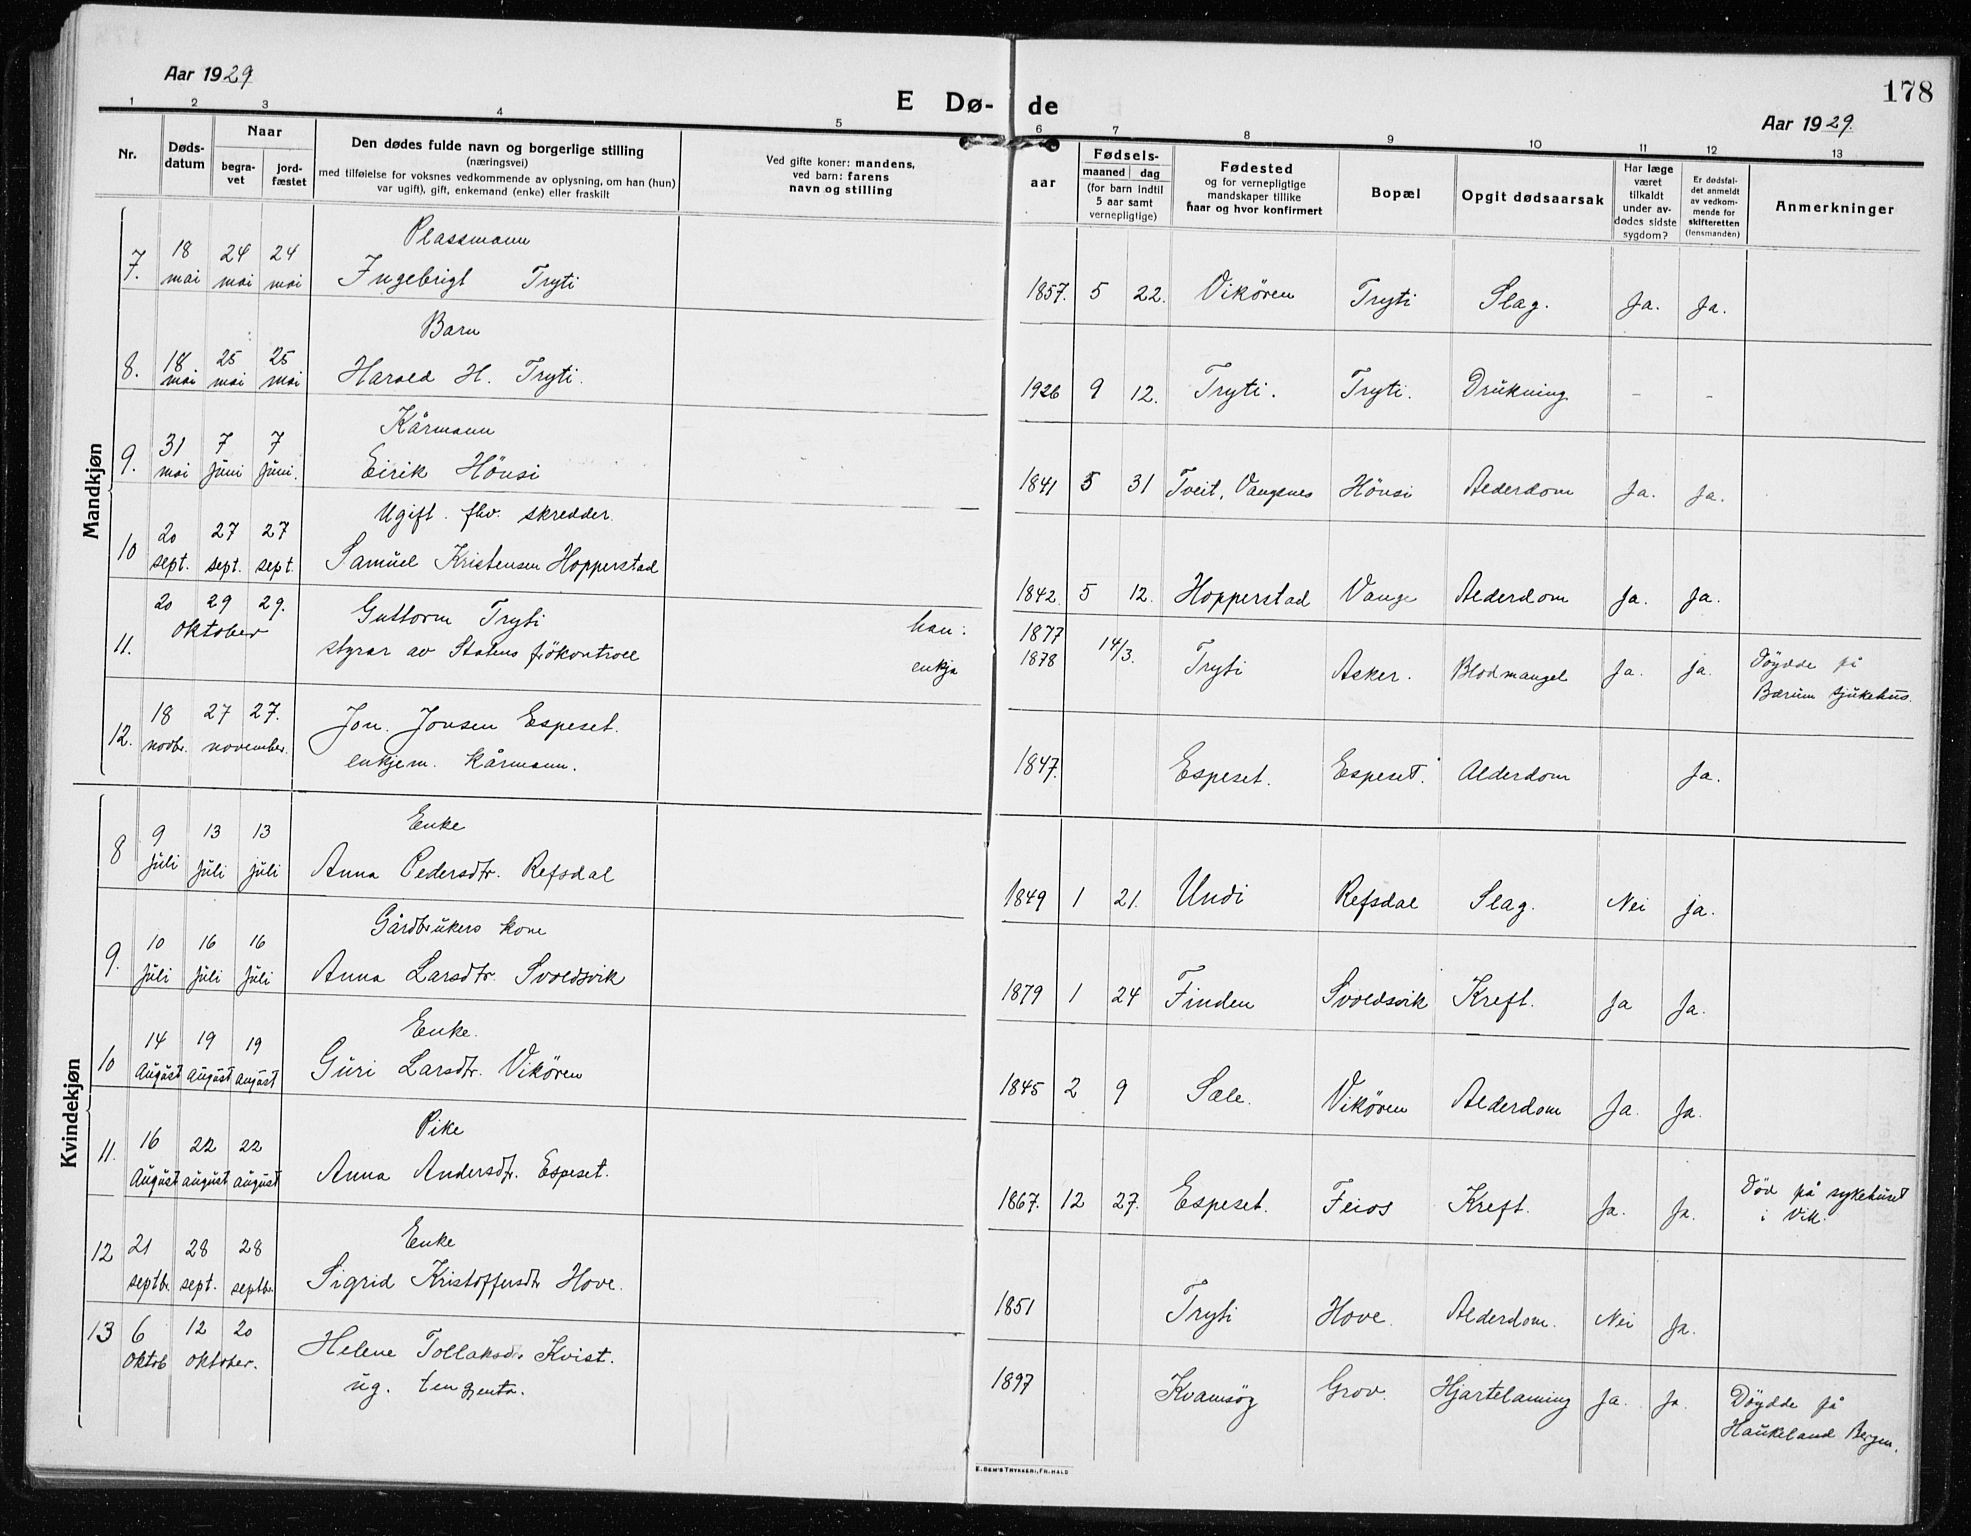 178
Aar 1929
E Dø- de
Aar 1929.
1 2 3 4 5 6 7 8 9 10 11 12 13
Nr.
Døds-
datum
Naar
begra-
vet
jord-
fæstet
Den dødes fulde navn og borgerlige stilling
(næringsvei)
med tilføielse for voksnes vedkommende av oplysning, om han (hun)
var ugift), gift, enkemand (enke) eller fraskilt
Ved gifte koner: mandens,
ved barn: farens
navn og stilling
Fødsels-
aar
maaned dag
(for barn indtil
5 aar samt
vernepligtige)
Fødested
og for vernepligtige
mandskaper tillike
naar og hvor konfirmert
Bopæl
Opgit dødsaarsak
Har læge
været
tilkaldt
under av-
dødes sidste
sygdom?
Er dødsfal-
det anmeldt
av vedkom-
mende for
skifteretten
(lensmanden)
Anmerkninger
Mandkjøn
7. 18 24 24 Plassmann
mai mai mai Ingebrigt Tryti 1857. 5 22. Vikören Tryti Slag. Ja. Ja.
Barn
8. 18 25 25
mai mai mai Harald H. Tryti. 1926 9 12. Tryti. Tryti. Drukning - -
Kårmann
9. 31 7 7
mai Juni Juni. Eirik Hönsi 1841 5 31 Tveit, Vangsnes Hönsi Alderdom Ja. Ja.
Ugift. fhv. skredder.
10 20 27 27
sept. sept. sept. Samuel Kristensen Hopperstad 1842 5 12. Hopperstad Vange Alderdom Ja. Ja.
20 29 29. Guttorm Tryti han: 1877
oktober
11. styrar av Statens frökontroll enkja 1878 14/3. Tryti Asker. Blodmangel Ja. Ja. Döydde på
Bærum sjukehus.
18 27 27. Jon Jonsen Espeset.
12. novbr. november. enkjem. kårmann. 1847. Espeset. Espeset. Alderdom Ja.
Kvindekjøn
Enke
8 9 13 13
Juli Juli Juli Anna Pedersdtr. Refsdal 1849 1 21. Undi Refsdal Slag. Nei Ja.
Gårdbrukers kone
9. 10 16 16
Juli Juli Juli Anna Larsdtr. Svoldsvik 1879 1 24 Finden Svoldsvik Kreft. Ja Ja.
Enke.
10 14 19 19
August August August Guri Larsdtr. Vikören 1845 2 9 Sæle. Vikören Alderdom Ja. Ja.
Pike
11. 16 22 22
August august august Anna Andersdtr. Espeset. 1867. 12 27. Espeset. Feios Kreft. Ja. Ja. Död på sykehuset
i Vik.
Enke
12 21 28 28
septbr. sept. septbr. Sigrid Kristoffersdtr Hove. 1851 Tryti Hove. Alderdom. Nei Ja.
13 6 12 20 Helene Tollaksd. Kvist.
oktob oktober. ug. tengjenta. 1897 Kvamsöy Grov. Hjartelaming Ja. Ja. Döydde på
Haukeland Bergen.
E. SEM'S TRYKKERI, FR. HALD